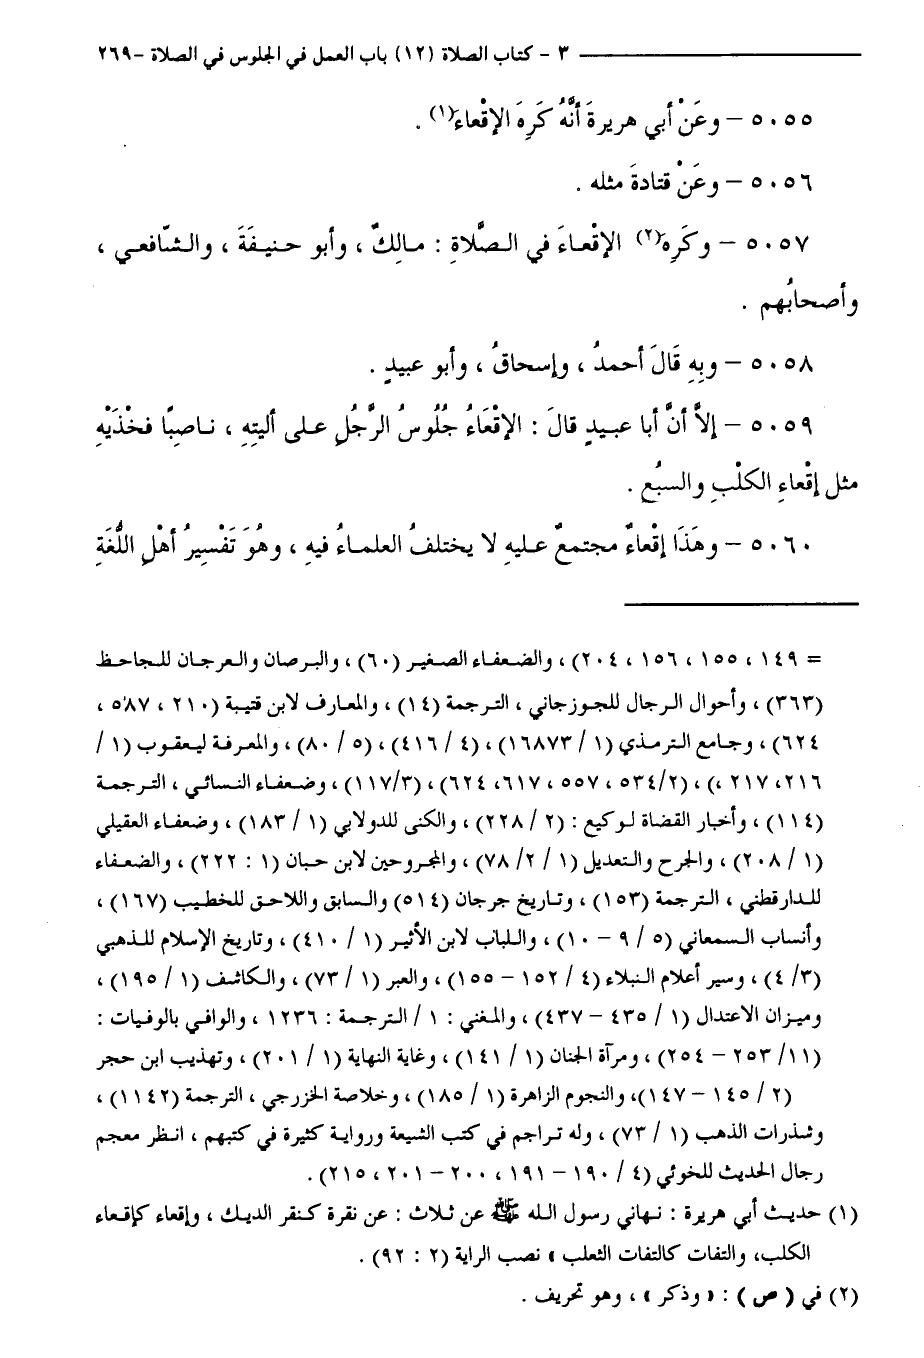 ٣ - كتاب الصلاة (١٢) باب العمل في الجلوس في الصلاة -٢٦٩
٥٠٥٥ - وعَنْ أبي هريرةَ أنَّهُ كَرِهَ الإقْعاءَ(١) .
٥٠٥٦ - وعَنْ قتادةَ مثله .
٥٠٥٧ - وكَرِه(٢) الإقْعاءَ في الصَّلاةِ : مالِكٌ ، وأبو حنيفَةَ ، والشَّافعي ،
وأصحابُهم .
٥٠٥٨ - وبِهِ قَالَ أحمدُ ، وإسحاقُ ، وأبو عبيدٍ .
٥٠٥٩ - إلاَّ أنَّ أبا عبيدٍ قالَ : الإقْعَاءُ جُلُوسُ الرَّجُلِ على أليتِهِ ، ناصِبًا فخْذَيْهِ
مثل إقْعاءِ الكلْبِ والسبُعِ .
٥٠٦٠ - وهَذَا إقْعاءٌ مجتمعٌ عليهِ لا يختلفُ العلماءُ فيهِ ، وهُوَ تَفْسِيرُ أهْلِ اللُّغَةِ
= ١٤٩ ، ١٥٥ ، ١٥٦ ، ٢٠٤) ، والضعفاء الصغير (٦٠) ، والبرصان والعرجان للجاحظ
(٣٦٣) ، وأحوال الرجال للجوزجاني ، الترجمة (١٤) ، والمعارف لابن قتيبة (٢١٠ ، ٥٨٧ ،
٦٢٤) ، وجامع الترمذي (١ / ١٦٨٧٣) ، (٤ / ٤١٦) ، (٥ / ٨٠) ، والمعرفة ليعقوب (١ /
٢١٦، ٢١٧ ،) ، (٥٣٤/٢ ، ٥٥٧ ، ٦١٧، ٦٢٤) ، (١١٧/٣) ، وضعفاء النسائي ، الترجمة
(١١٤) ، وأخبار القضاة لوكيع : (٢ / ٢٢٨) ، والكنى للدولابي (١ / ١٨٣) ، وضعفاء العقيلي
(١ / ٢٠٨) ، والجرح والتعديل (١ / ٢/ ٧٨) ، والمجروحين لابن حبان (١ : ٢٢٢) ، والضعفاء
للدارقطني ، الترجمة (١٥٣) ، وتاريخ جرجان (٥١٤) والسابق واللاحق للخطيب (١٦٧) ،
وأنساب السمعاني (٥ / ٩ - ١٠) ، واللباب لابن الأثير (١ / ٤١٠) ، وتاريخ الإسلام للذهبي
(٣/ ٤) ، وسير أعلام النبلاء (٤ / ١٥٢ - ١٥٥) ، والعبر (١ / ٧٣) ، والكاشف (١ / ١٩٥) ،
وميزان الاعتدال (١ / ٤٣٥ - ٤٣٧) ، والمغني : ١ / الترجمة : ١٢٣٦ ، والوافي بالوفيات :
(١١/ ٢٥٣ - ٢٥٤) ، ومرآة الجنان (١ / ١٤١) ، وغاية النهاية (١ / ٢٠١) ، وتهذيب ابن حجر
(٢ / ١٤٥ - ١٤٧)، والنجوم الزاهرة (١ / ١٨٥) ، وخلاصة الخزرجي ، الترجمة (١١٤٢) ،
وشذرات الذهب (١ / ٧٣) ، وله تراجم في كتب الشيعة ورواية كثيرة في كتبهم ، انظر معجم
رجال الحديث للخوئي (٤ / ١٩٠ - ١٩١ ، ٢٠٠ - ٢٠١ ، ٢١٥) .
(١) حديث أبي هريرة : نهاني رسول الله ﷺ عن ثلاث : عن نقرة كنقر الديك ، وإقعاء كإقعاء
الكلب، والتفات كالتفات الثعلب » نصب الراية (٢ : ٩٢) .
(٢) في ( ص ) : « وذكر » ، وهو تحريف .